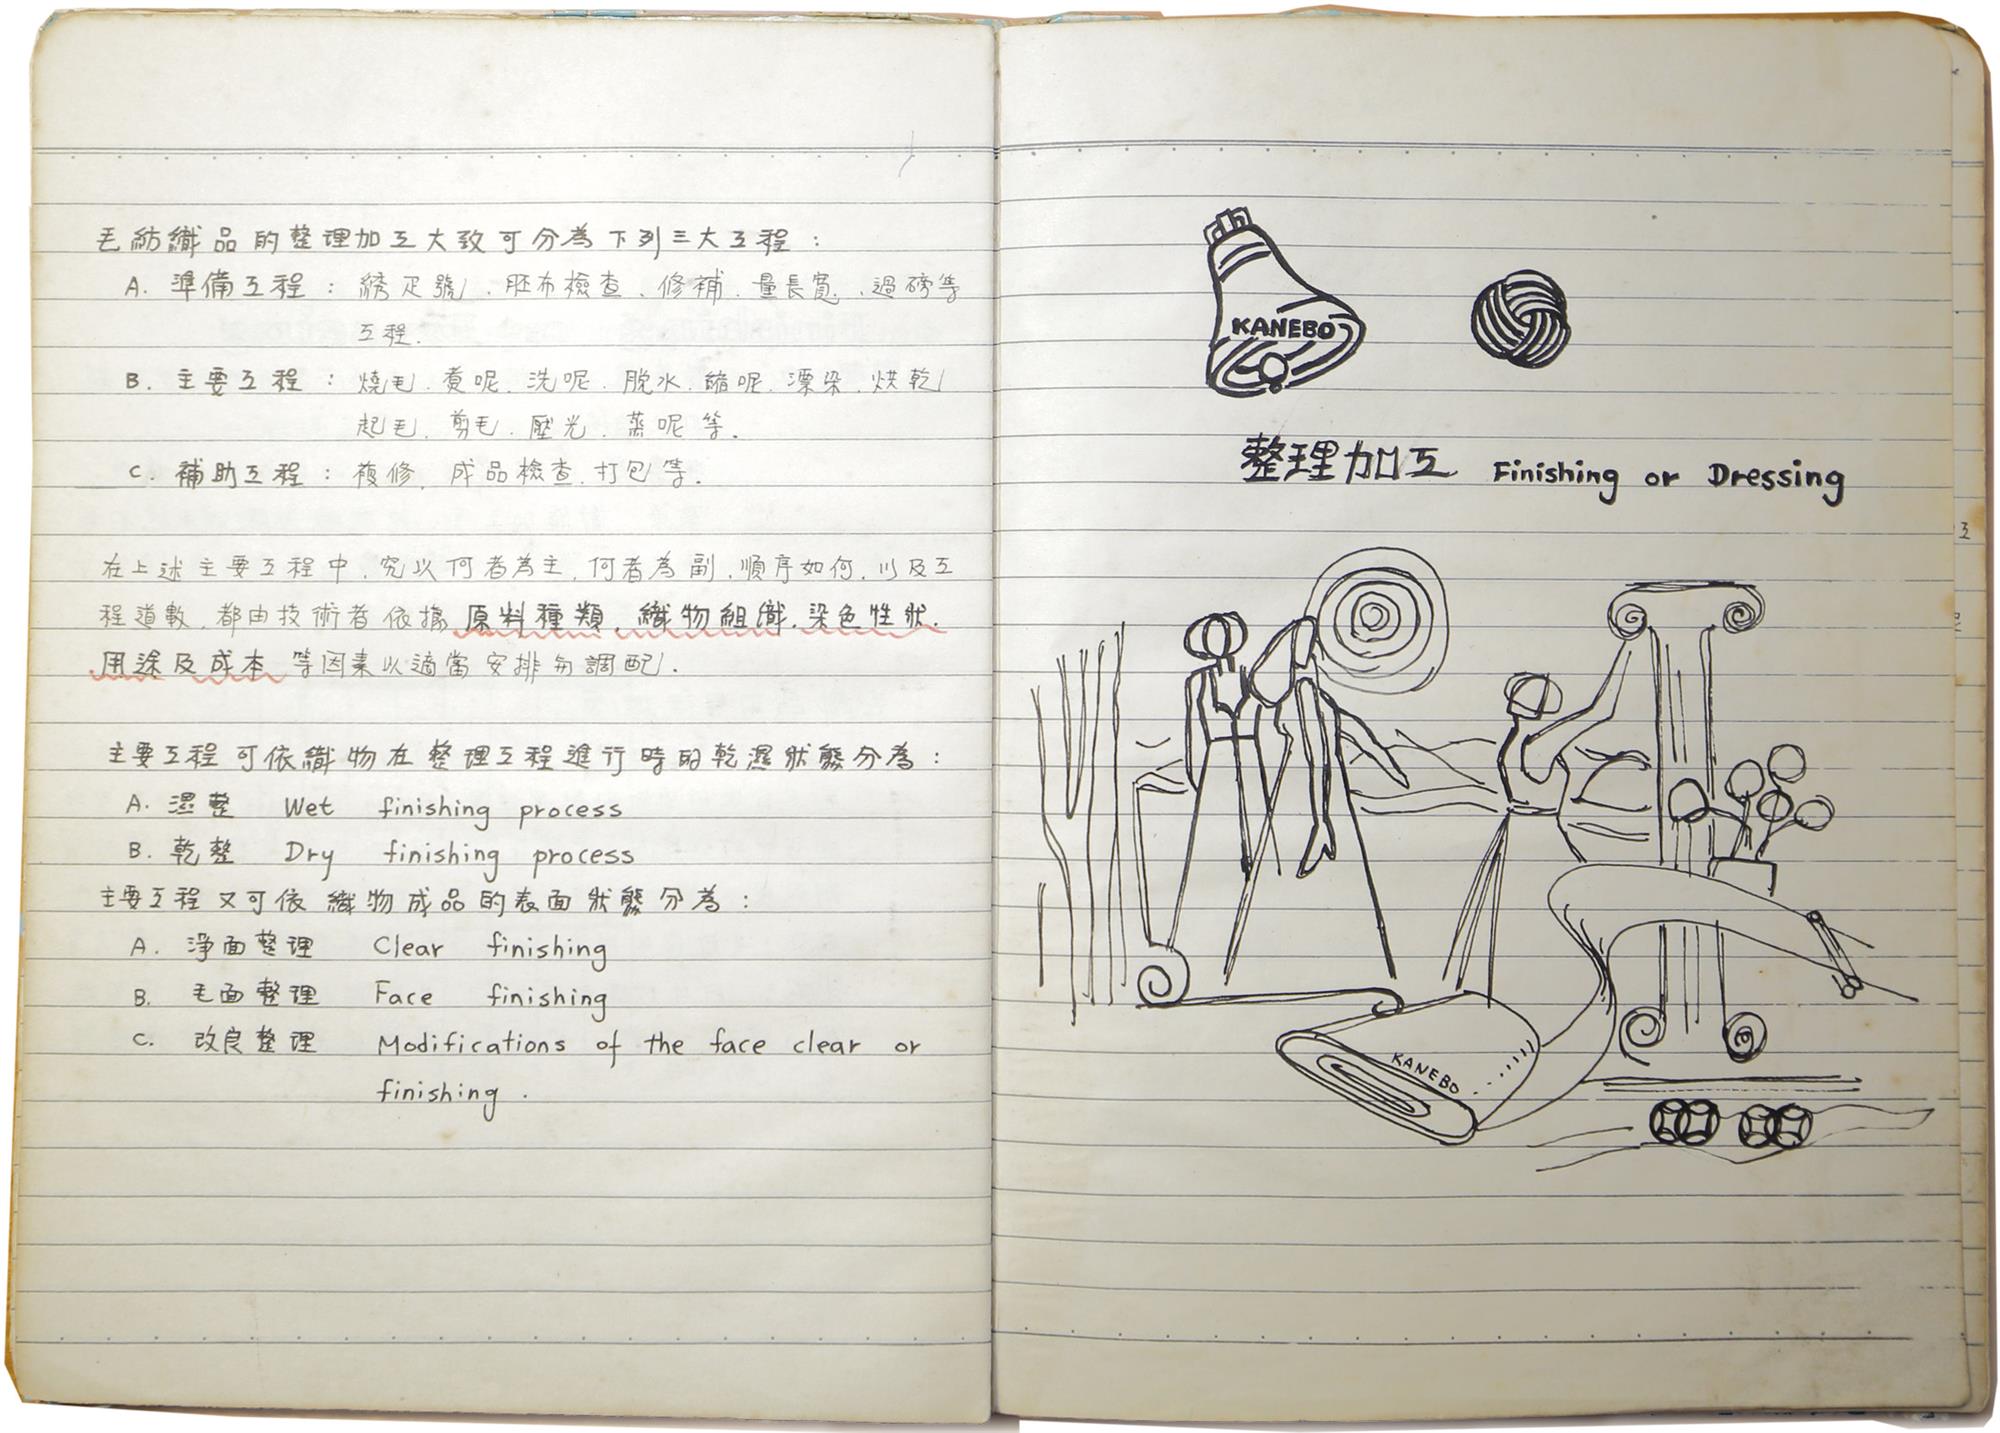 毛紡織品的整理加工大致可分為下列三大工程：
A. 準備工程：綉疋號、胚布檢查、修補、量長寬、過磅等
工程.
B. 主要工程：燒毛、煮呢、洗呢、脫水、縮呢、漂染、烘乾
起毛、剪毛、壓光、蒸呢等.
C. 補助工程：複修、成品檢查、打包等.
在上述主要工程中,究以何者為主,何者為副,順序如何,以及工
程道數,都由技術者依據原料種類、織物組織、染色性狀、
用途及成本等因素以適當安排勻調配.
主要工程可依織物在整理工程進行時的乾濕狀態分為：
A. 濕整 Wet finishing process
B. 乾整 Dry finishing process
主要工程又可依織物成品的表面狀態分為：
A. 淨面整理 Clear finishing
B. 毛面整理 Face finishing
C. 改良整理 Modifications of the face clear or
finishing.
KANEBO
整理加工 Finishing or Dressing
KANEBO